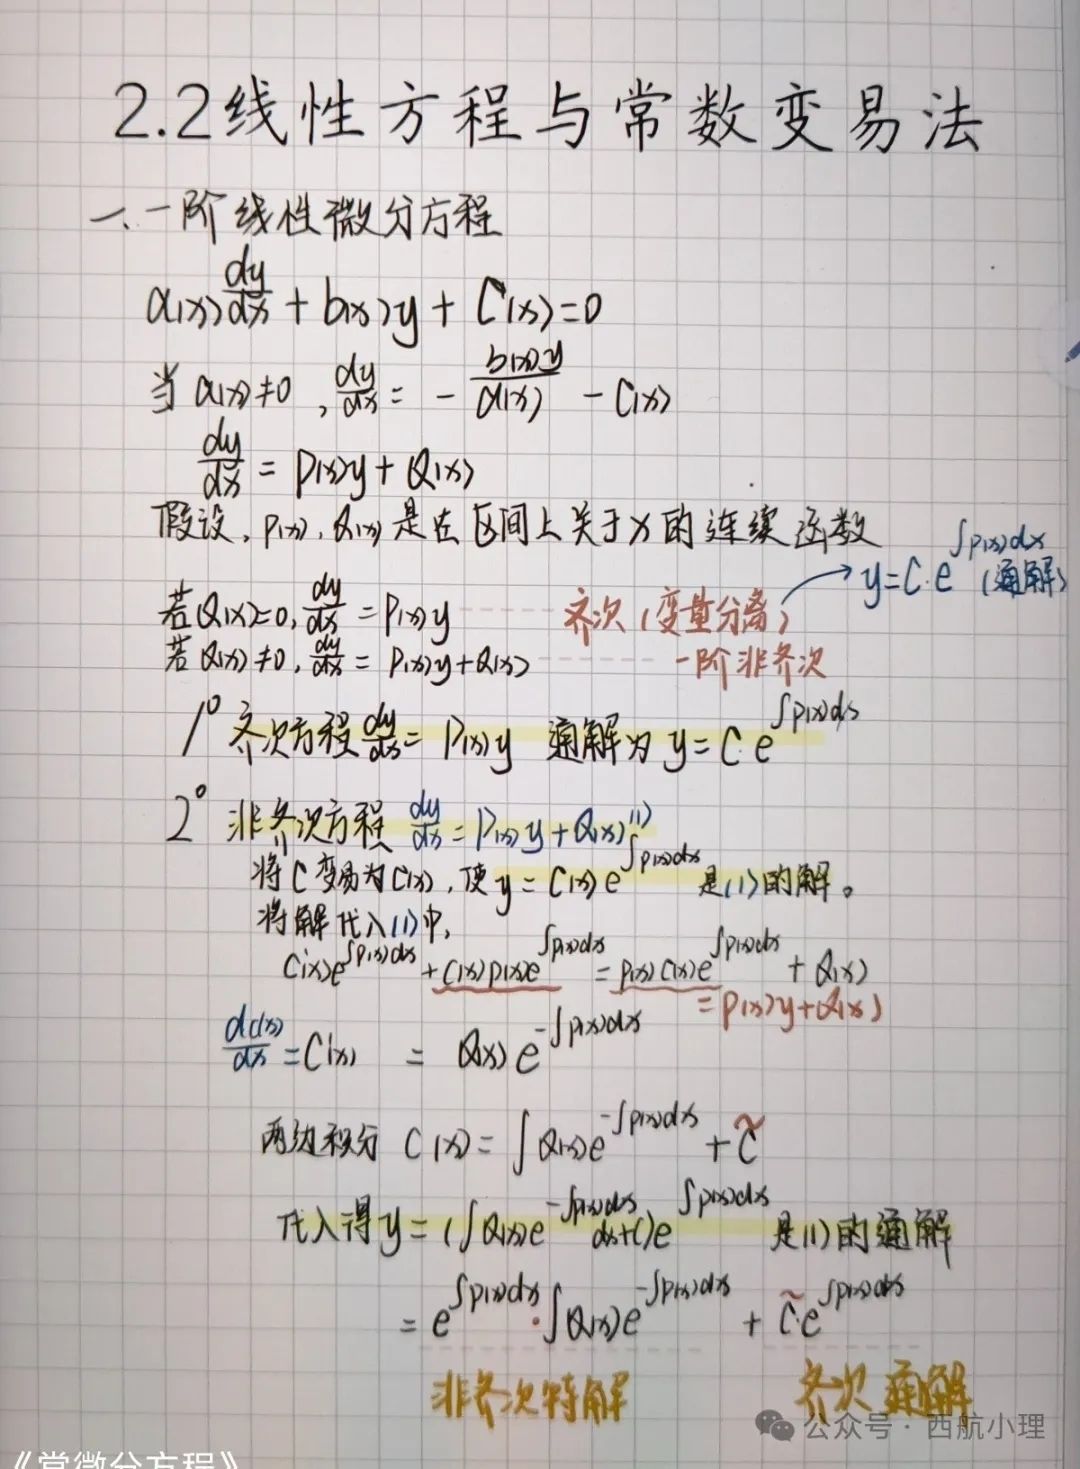 2.2线性方程与常数变易法
一、一阶线性微分方程
a(x)dy/dx + b(x)y + C(x)=0
当 a(x)≠0, dy/dx = - b(x)y/a(x) - C(x)
dy/dx = P(x)y + Q(x)
假设, P(x), Q(x) 是在区间上关于x的连续函数
y=C·e^∫p(x)dx (通解)
若Q(x)=0, dy/dx = P(x)y 齐次(变量分离)
若Q(x)≠0, dy/dx = P(x)y+Q(x) 一阶非齐次
1° 齐次方程 dy/dx = P(x)y 通解为 y=C·e^∫p(x)dx
2° 非齐次方程 dy/dx = P(x)y + Q(x) (1)
将C变易为C(x), 使 y = C(x)e^∫p(x)dx 是(1)的解。
将解代入(1)中,
C'(x)e^∫p(x)dx + C(x)p(x)e^∫p(x)dx = p(x)C(x)e^∫p(x)dx + Q(x)
= P(x)y+Q(x)
dC(x)/dx = C'(x) = Q(x)e^-∫p(x)dx
两边积分 C(x) = ∫Q(x)e^-∫p(x)dx + C̃
代入得 y = (∫Q(x)e^-∫p(x)dx dx+C)e^∫p(x)dx 是(1)的通解
= e^∫p(x)dx · ∫Q(x)e^-∫p(x)dx + C̃·e^∫p(x)dx
非齐次特解 齐次通解
公众号·西航小理
《常微分方程》